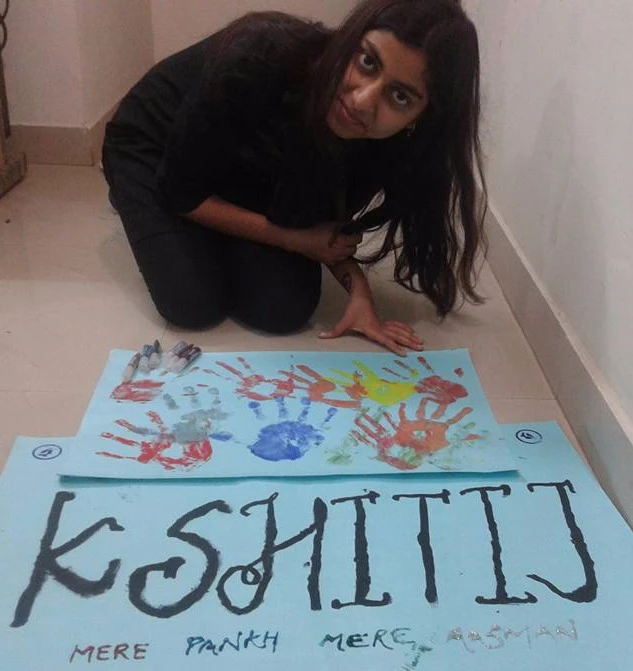 KSHITIJ
MERE PANKH MERE AASMAN